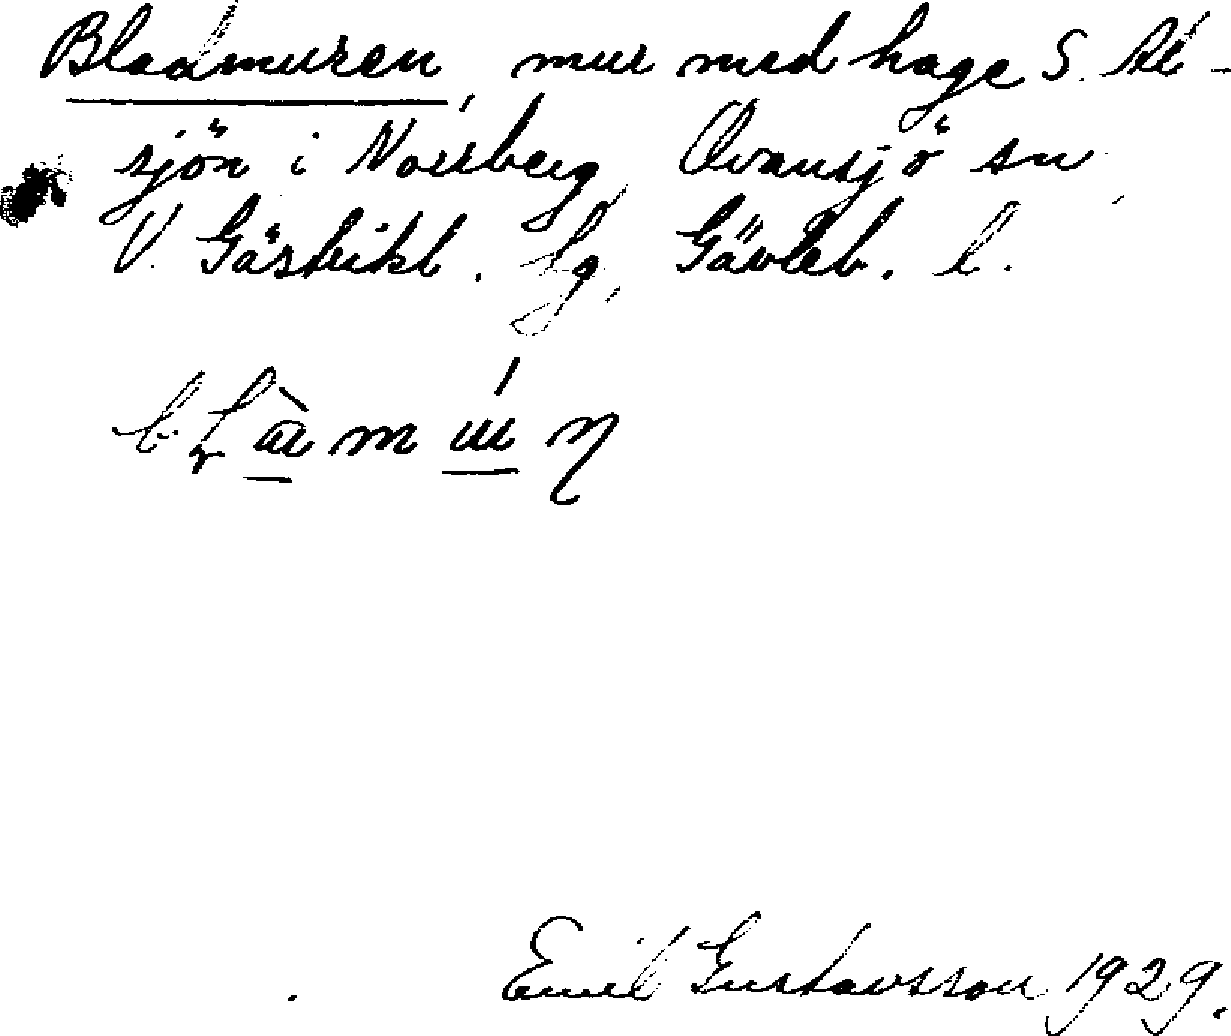 Bladmuren, mur med hage S. Al-
sjön i Norrberg, Ovansjö sn,
V. Gästrikl. hg, Gävleb. l.
Emil Gustavsson 1929.